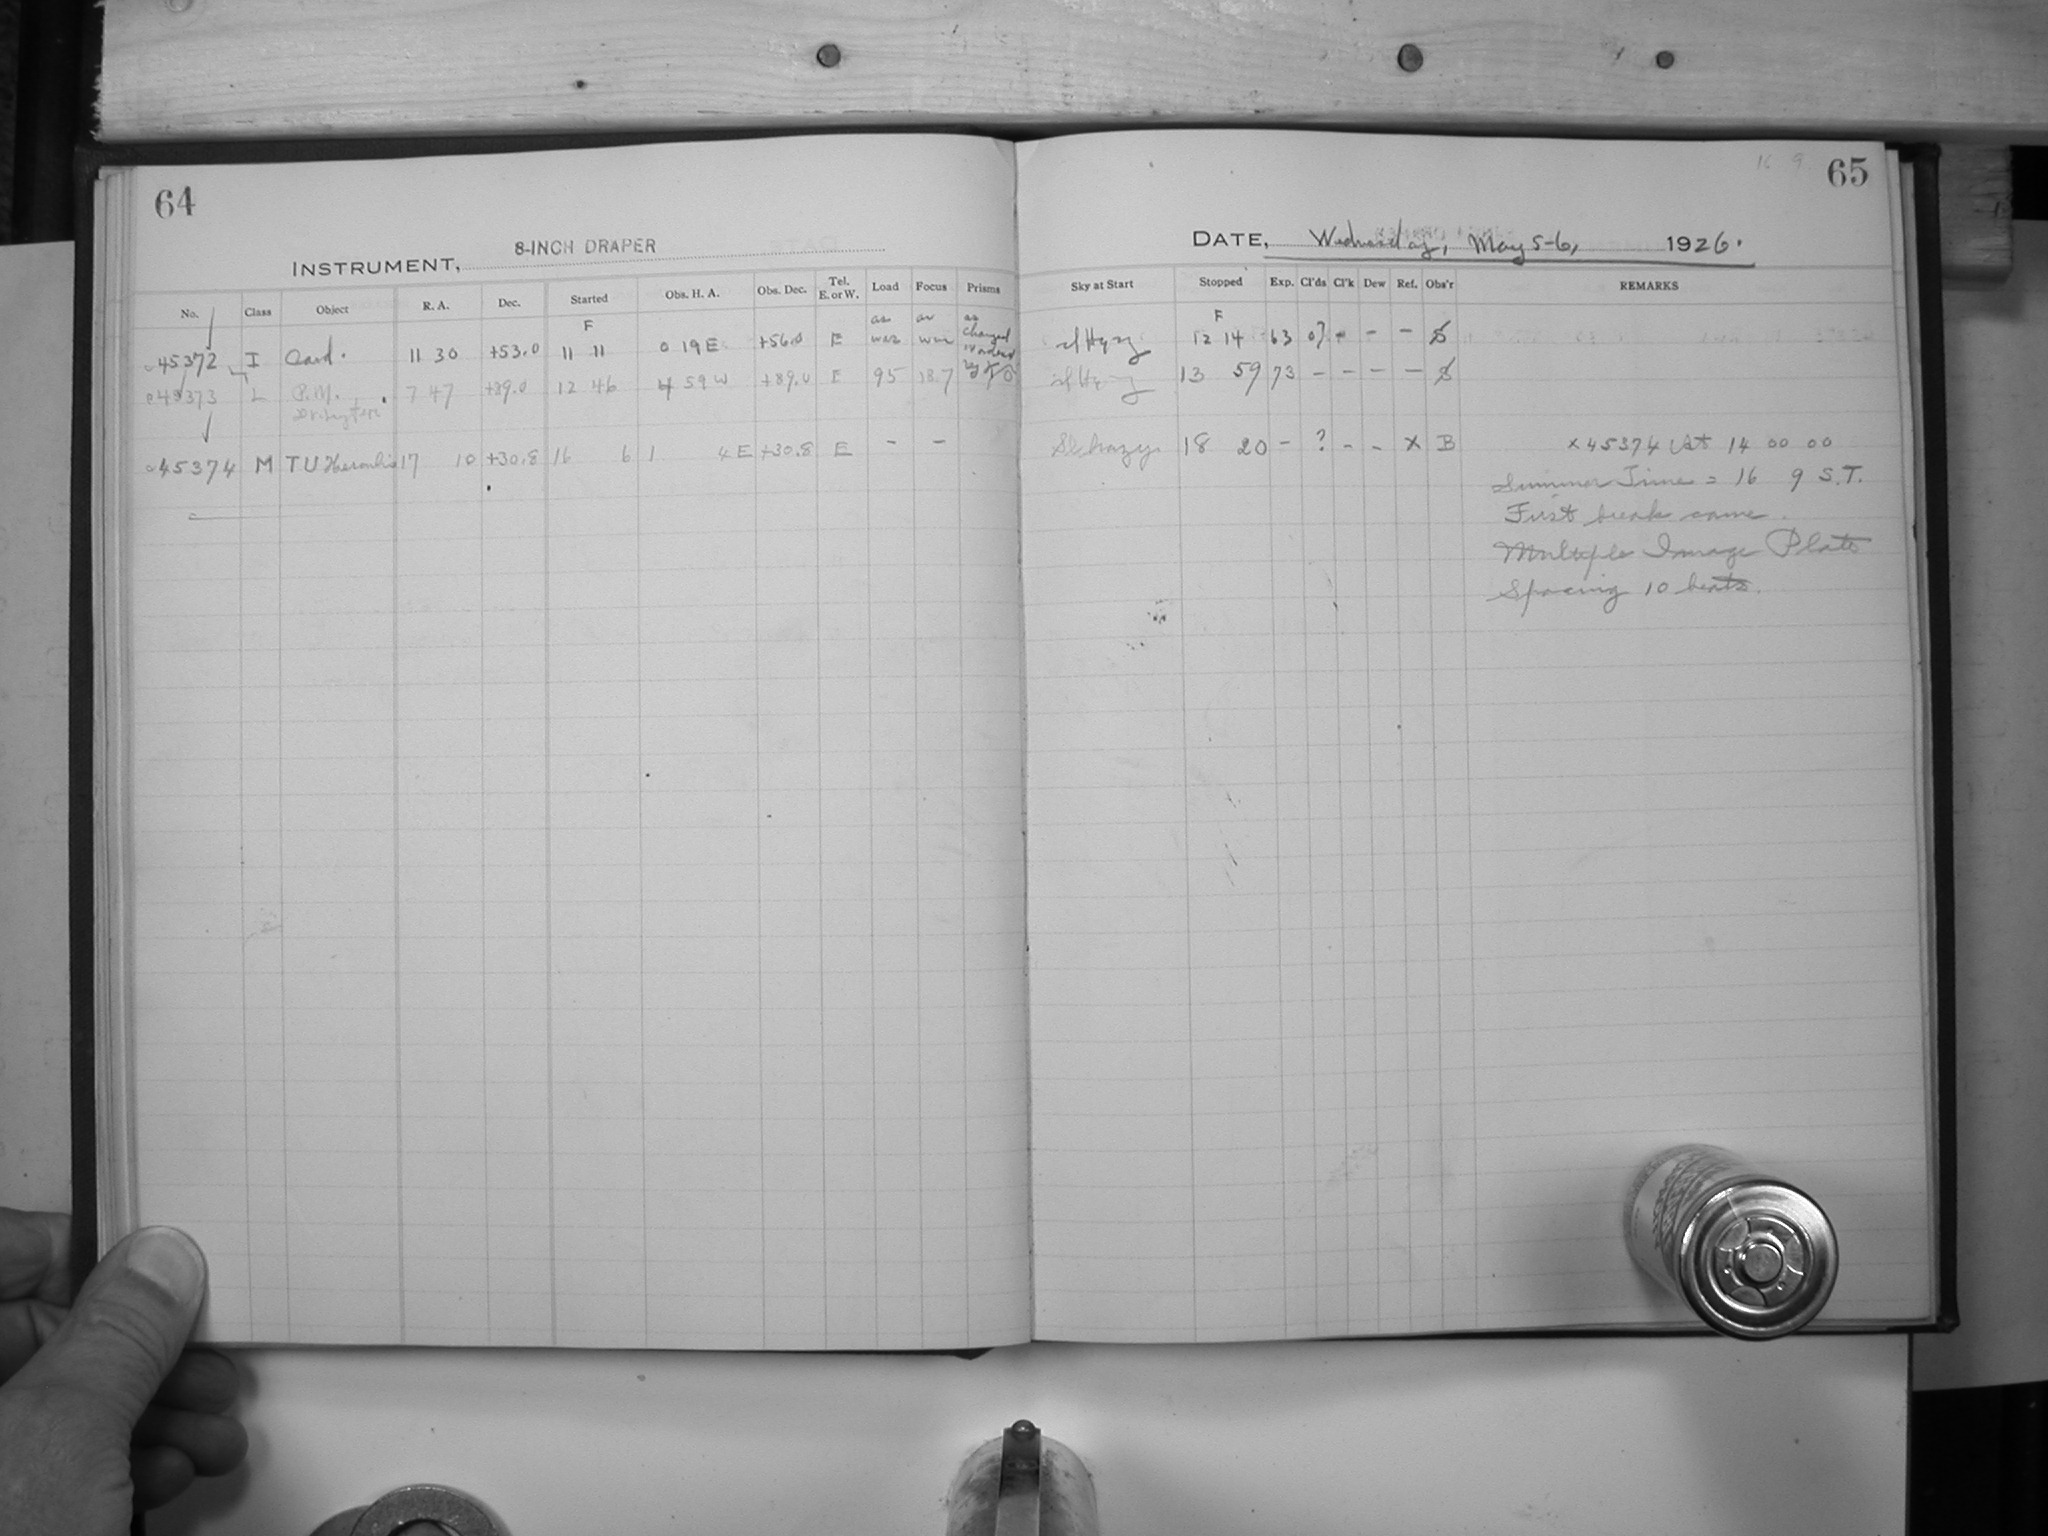 64
INSTRUMENT, 8-INCH DRAPER
No. Class Object R. A. Dec. Started Obs. H. A. Obs. Dec. Tel. E. or W. Load Focus Prisms
F
45372 I Card. 11 30 +53.0 11 11 0 19 E +56.0 E as was as was as changed
45373 L P.M. 7 47 +89.0 12 46 4 59 W +89.0 E 95 18.7
45374 M T U Herculis 17 10 +30.8 16 6 1 4 E +30.8 E - -
16 9 65
DATE, Wednesday, May 5-6, 1926.
Sky at Start Stopped Exp. Cl'ds Cl'k Dew Ref. Obs'r REMARKS
F
sl Hazy 12 14 63 0? - - - S
sl Hazy 13 59 73 - - - - S
Sl hazy 18 20 - ? - - x B x 45374 at 14 00 00
Summer Time = 16 9 S.T.
First break came.
Multiple Image Plate
Spacing 10 beats.